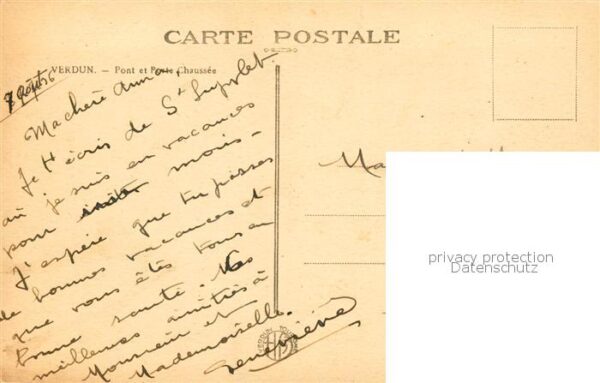 CARTE POSTALE
VERDUN. — Pont et Porte Chaussée
7 Août
Ma chère Anna,
Je t'écris de St Supplet
où je suis en vacances
pour mois -
J'espère que tu passes
de bonnes vacances et
que vous êtes tous en
bonne santé. Mes
meilleures amitiés à
Monsieur et
Mademoiselle.
Geneviève
Ma
privacy protection
Datenschutz